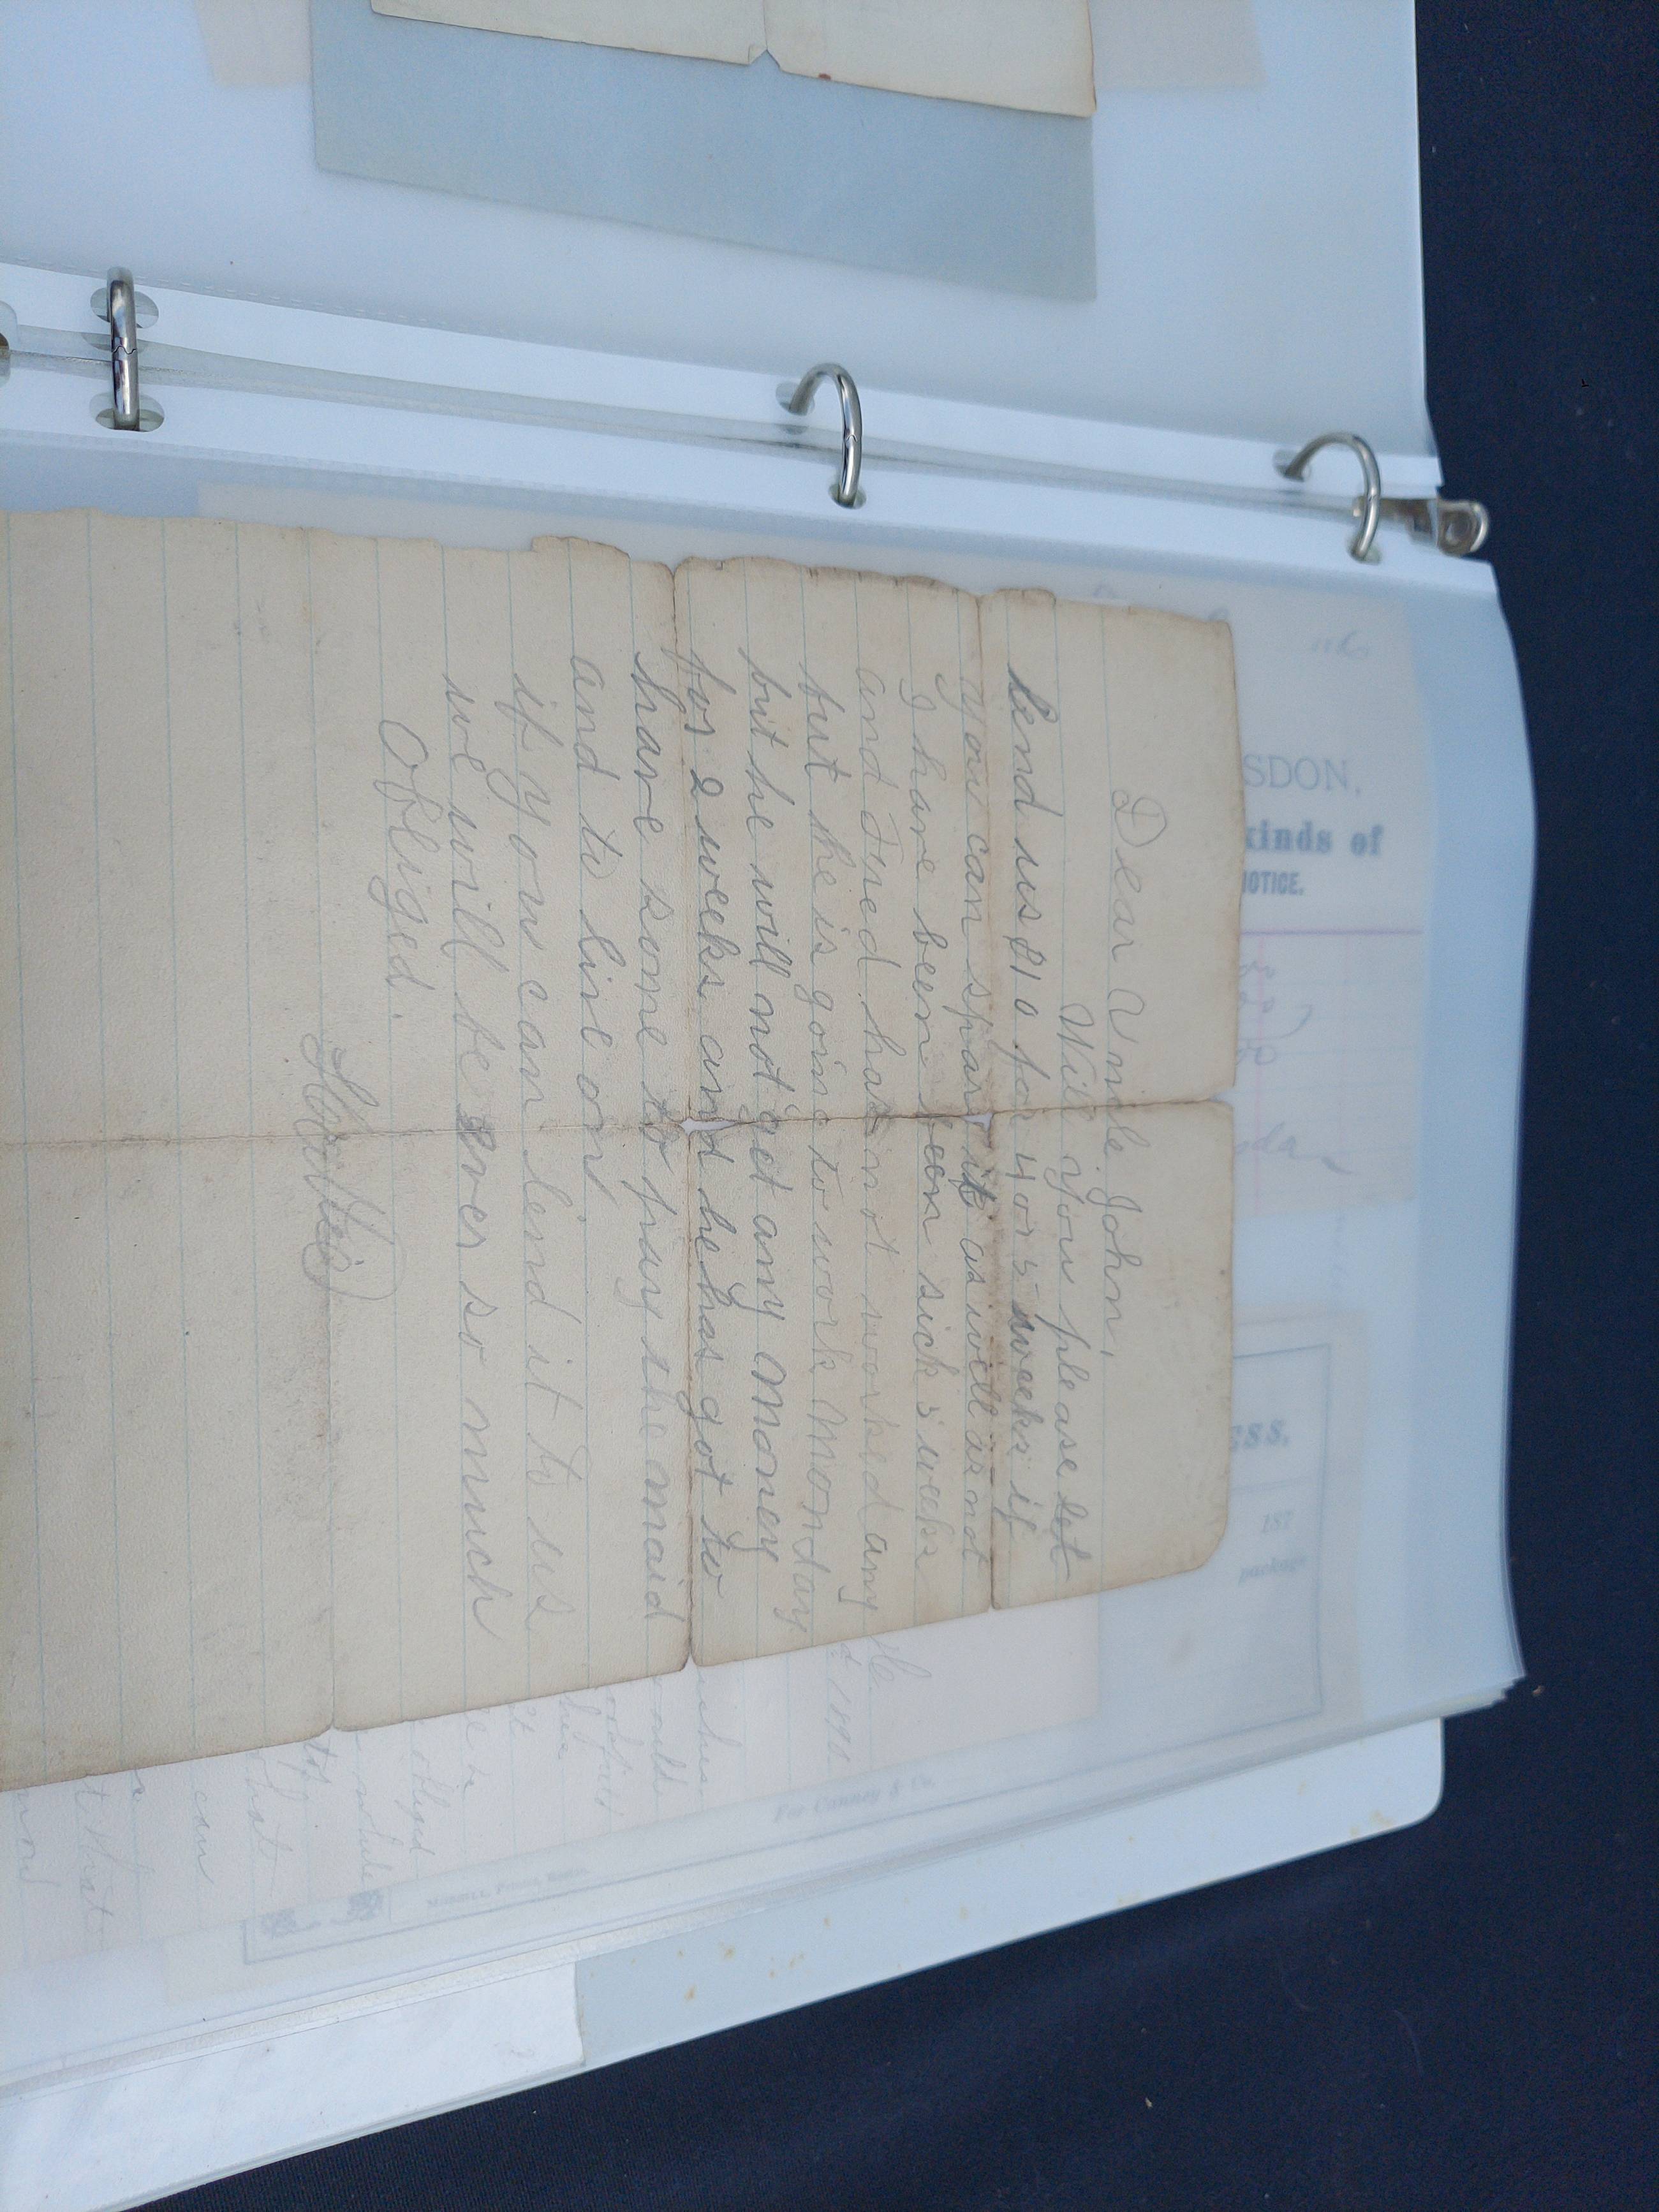 Dear Uncle John,
Will you please let
Lend us $10 for 4 or 5 weeks if
you can spair it as well as not
I have been been sick 5 weeks
and Fred has not worked any
but he is going to work Monday
but he will not get any money
for 2 weeks and he has got to
have some to pay the maid
and to live on
if you can lend it to us
we will be ever so much
Obliged.
SDON,
kinds of
NOTICE.
ESS.
1ST
package
For Canney & Co.